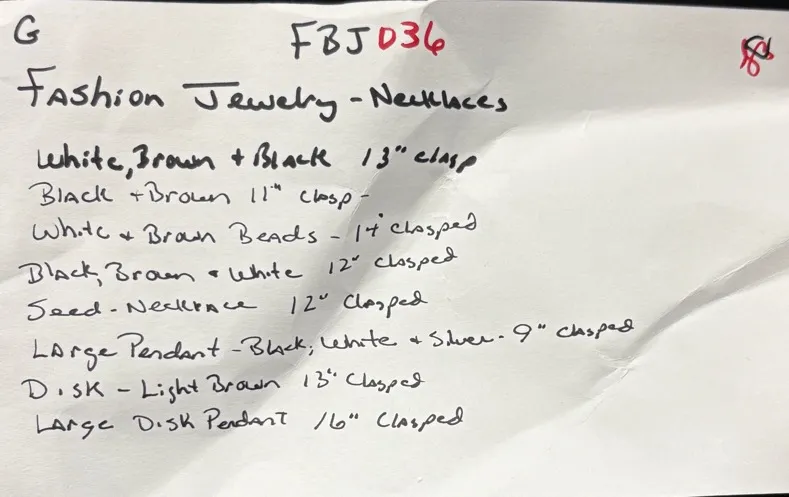 G
FBJ036
Fashion Jewelry - Necklaces
White, Brown + Black 13" clasp
Black + Brown 11" clasp -
White + Brown Beads - 14" clasped
Black, Brown + White 12" clasped
Seed - Necklace 12" clasped
Large Pendant - Black, White + Silver - 9" clasped
Disk - Light Brown 13" clasped
Large Disk Pendant 16" clasped